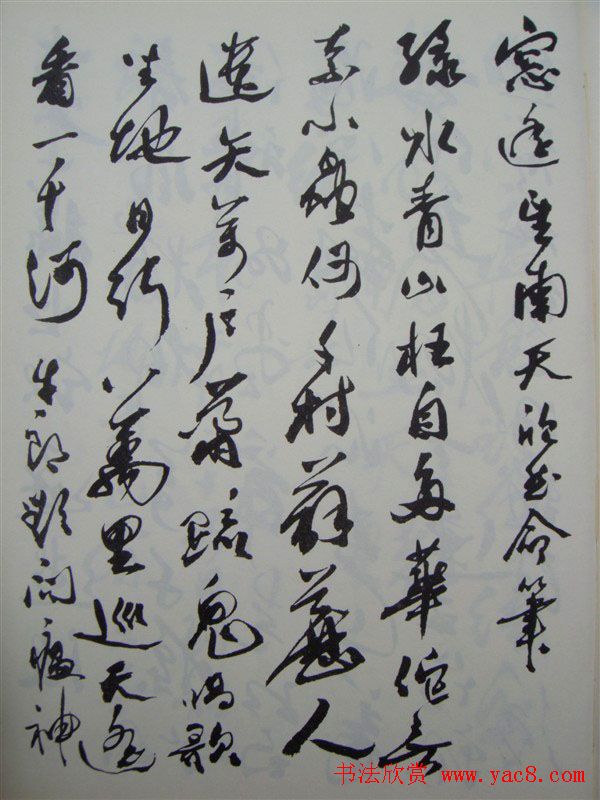 窻遥望南天欣然命筆
绿水青山枉自多華佗无
奈小蟲何千村薜荔人
遗矢萬户萧疏鬼唱歌
坐地日行八萬里巡天遥
看一千河牛郎欲问瘟神
书法欣赏 www.yac8.com